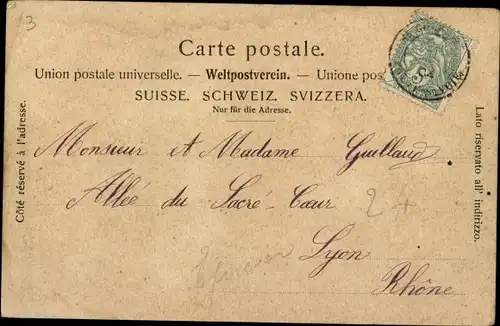 3
Carte postale.
Union postale universelle. — Weltpostverein. — Unione pos
SUISSE. SCHWEIZ. SVIZZERA.
Nur für die Adresse.
Côté réservé à l'adresse.
Lato riservato all' indirizzo.
Monsieur et Madame Guelland
Allée du Sacré-Cœur
2 +
Lyon
Rhône